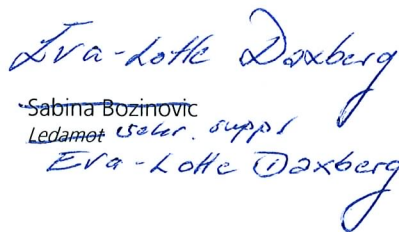 Eva-Lotte Daxberg
Sabina Bozinovic
Ledamot suppl
Eva-Lotte Daxberg